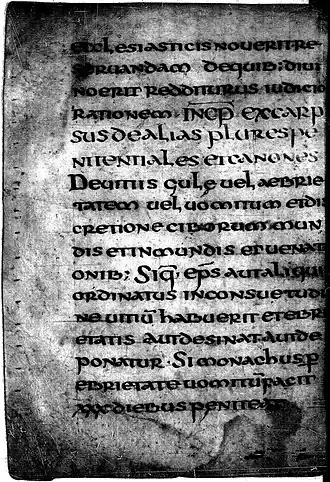 ecclesiasticis noverit re
servandam de quib; divi
no erit redditurus iudicio
rationem · incp̄ excarp
sus de alias plures pe
nitentiales et canones
De vitiis gule vel aebrie
tatem vel vomitum et dis
cretione ciborum mun
dis et inmundis et venat
onib; Siq̄ · ep̄s aut aliqui
ordinatus in consuetudi
ne vitiū habuerit et ebri
etatis aut desinat aut de
ponatur · Si monachus p
ebrietate vomitū facit
xxx diebus peniteat